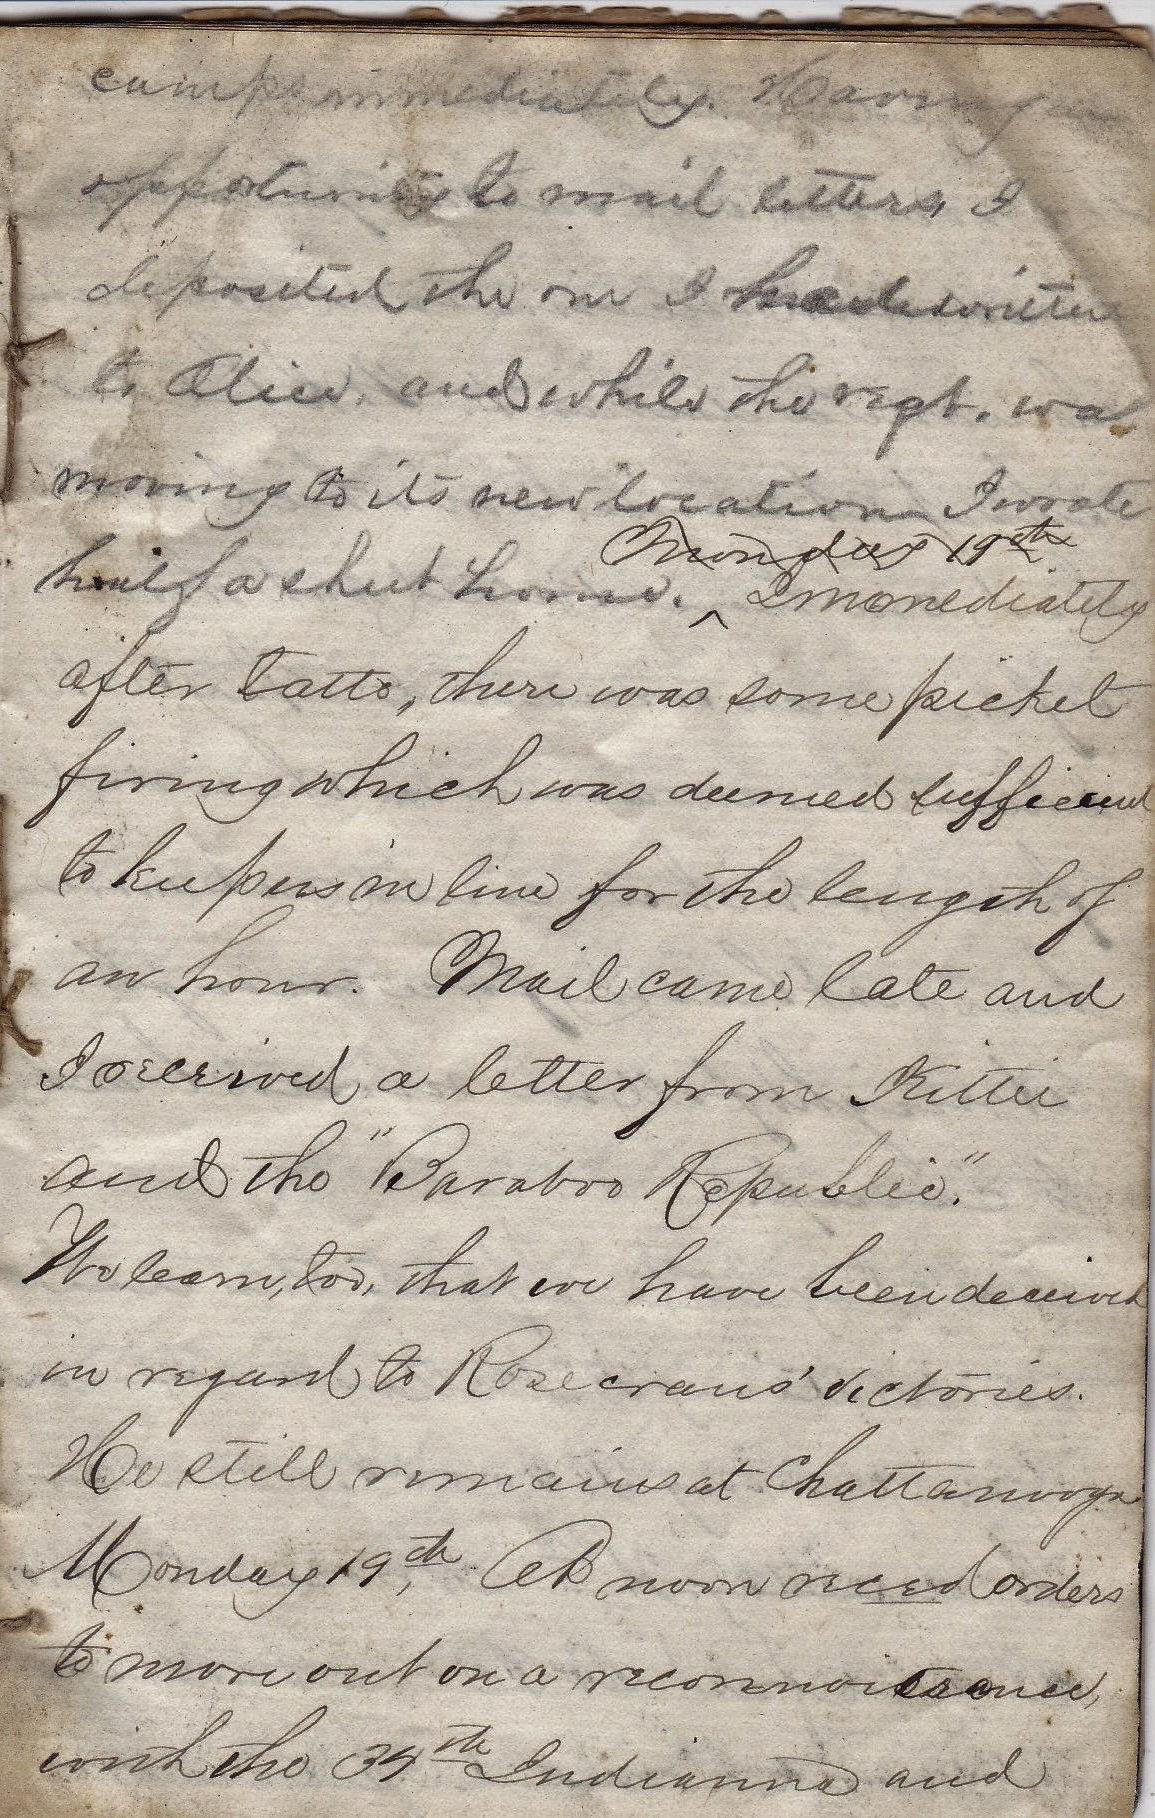 camps immediately. Having
opportunity to mail letters, I
deposited the one I had written
to Alice, and while the regt. was
moving to its new location I wrote
Monday 19th
half a sheet home. ^ Immediately
after tatto, there was some picket
firing which was deemed sufficient
to keep us in line for the length of
an hour. Mail came late and
I received a letter from Kittie
and the "Baraboo Republic."
We learn, too, that we have been deceived
in regard to Rosecrans' victories.
He still remains at Chattanooga
Monday 19th, At noon reced orders
to move out on a reconnoisance,
with the 34th Indianna and